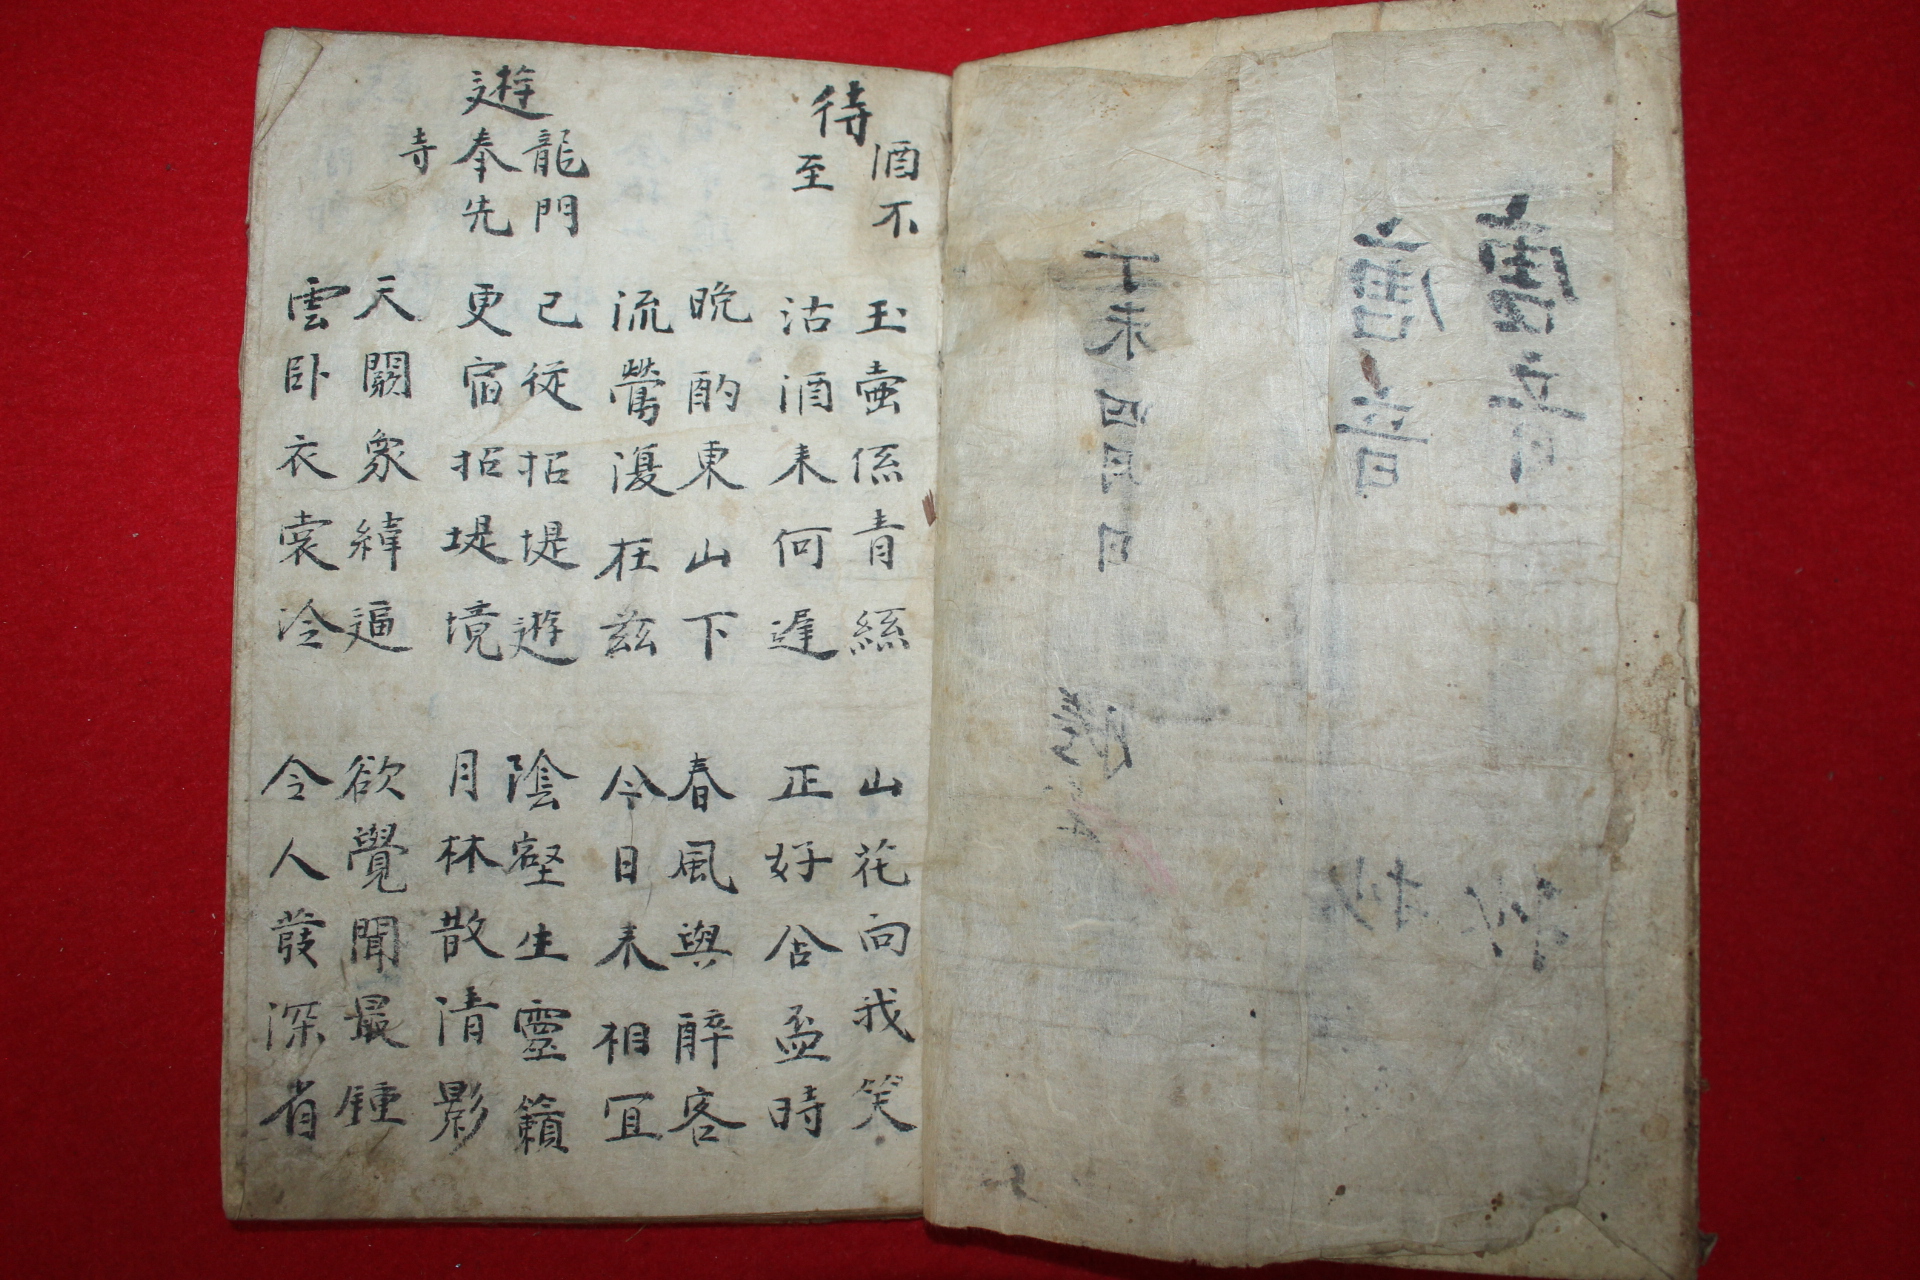 唐音
抄
唐音
抄
丁未四月日
待酒不至
玉壷係青絲
沽酒来何遅
山花向我笑
正好含盃時
晩酌東山下
流鶯復在茲
春風與醉客
今日来相宜
遊龍門奉先寺
已從招堤遊
更宿招堤境
陰壑生靈籟
月林散清影
天闕象緯逼
雲卧衣裳冷
欲覺聞最鍾
令人發深省